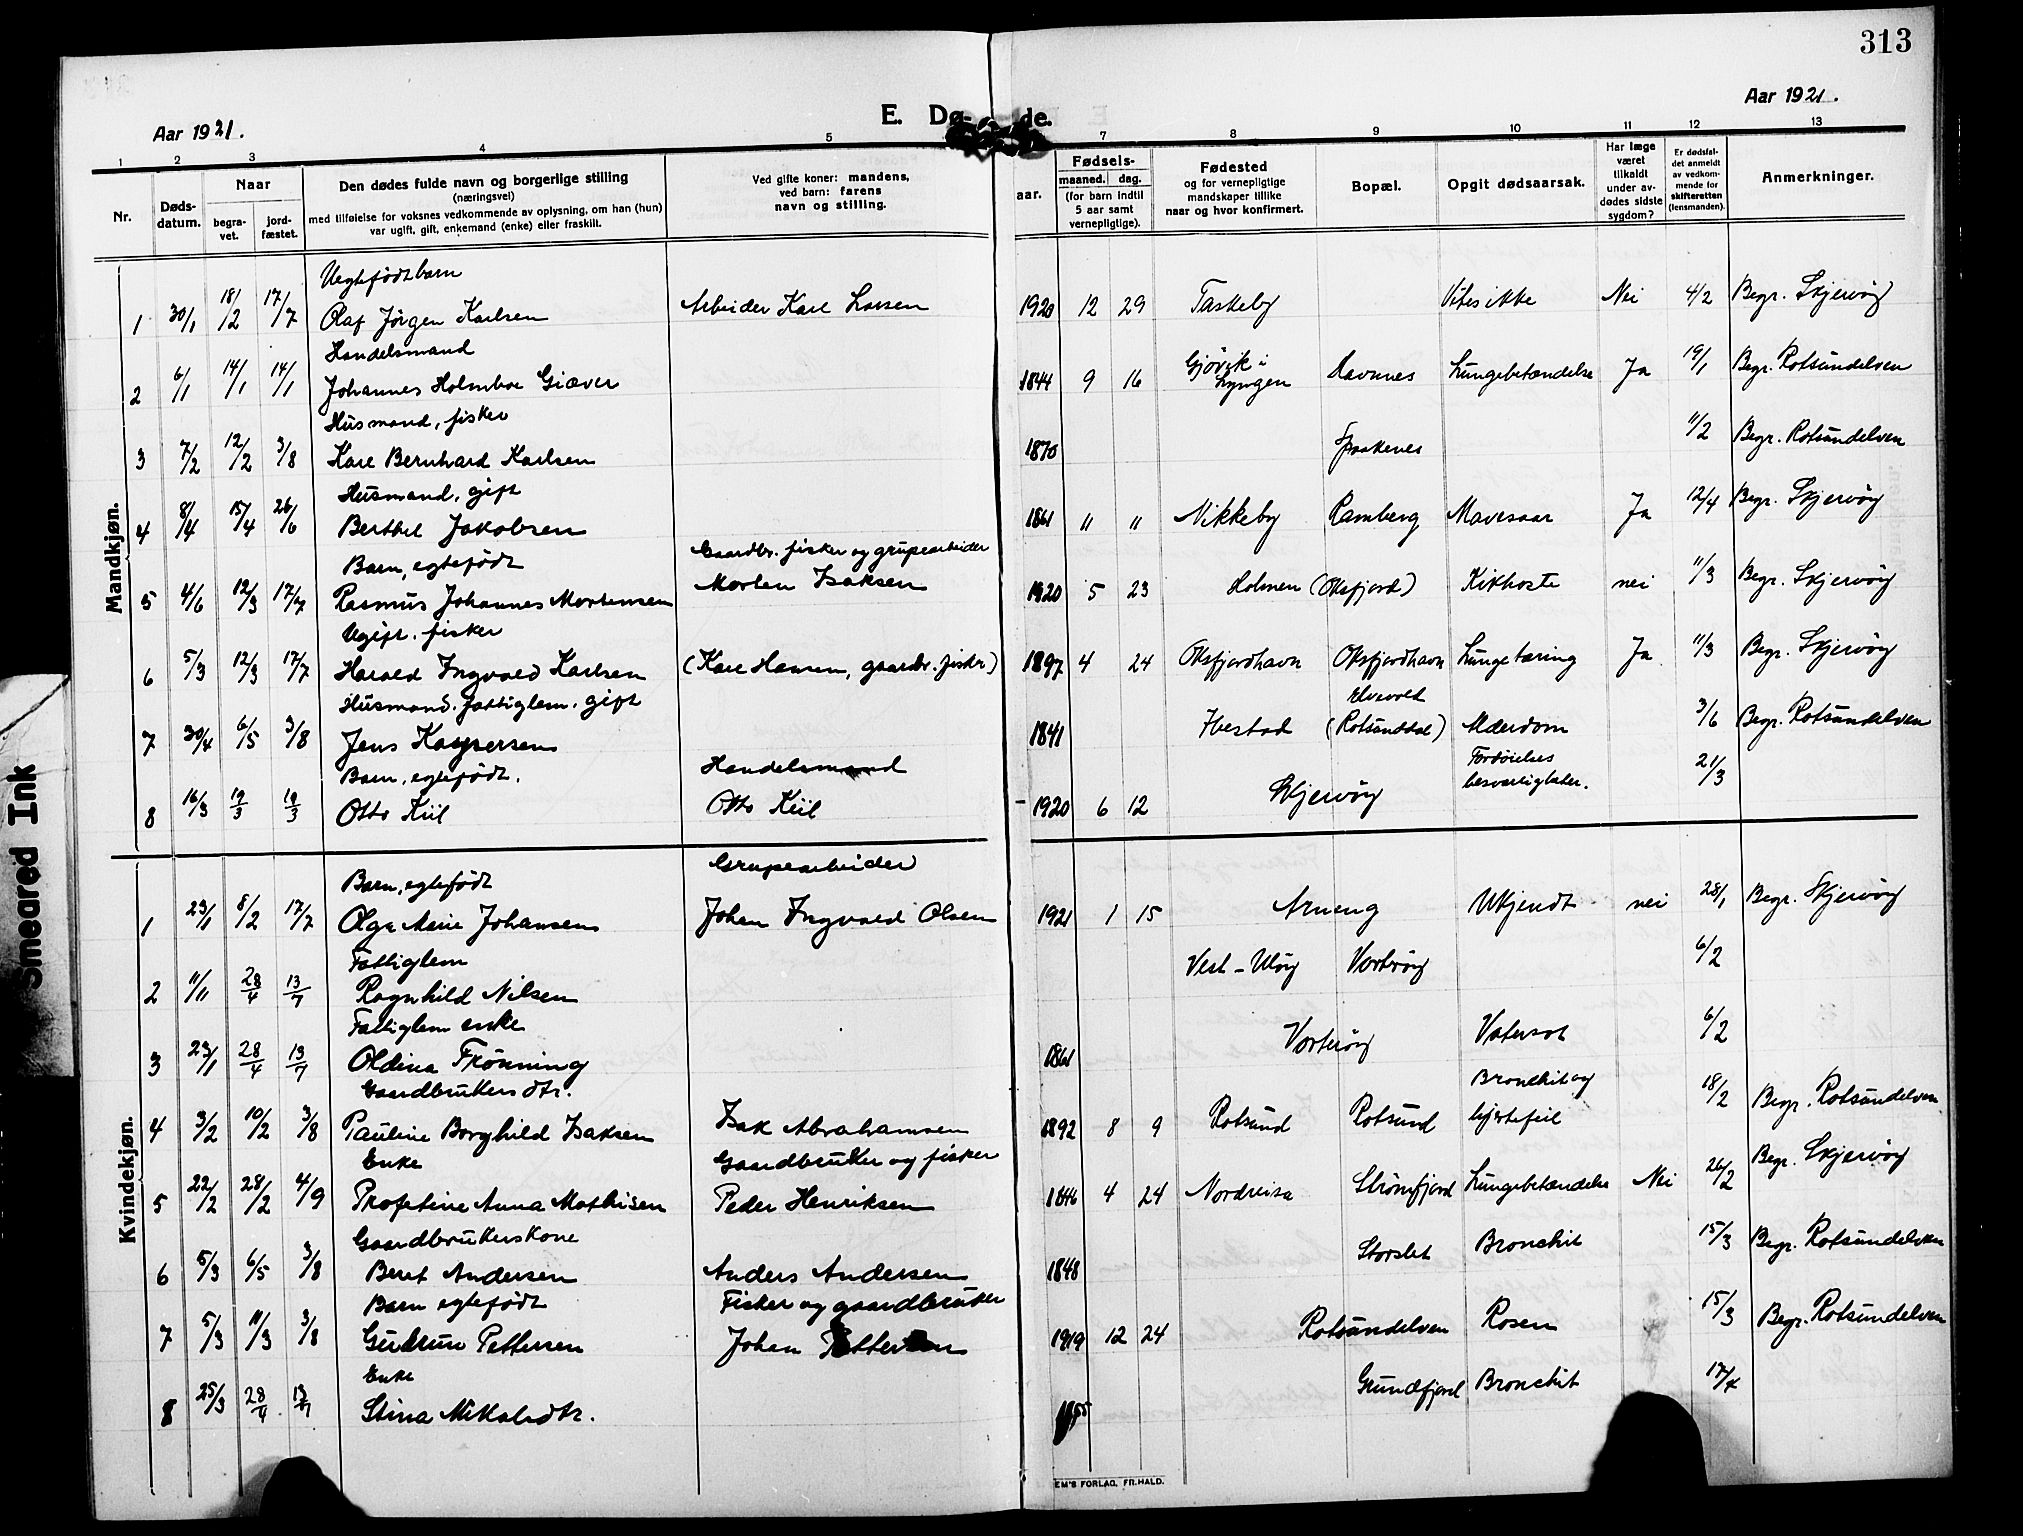 313
Aar 1921.
E. Dø de.
Aar 1921.
1 2 3 4 5 7 8 9 10 11 12 13
Nr.
Døds-
datum.
Naar
begra-
vet.
jord-
fæstet.
Den dødes fulde navn og borgerlige stilling
(næringsvei)
med tilføielse for voksnes vedkommende av oplysning, om han (hun)
var ugift, gift, enkemand (enke) eller fraskill.
Ved gifte koner: mandens,
ved barn: farens
navn og stilling.
aar.
Fødsels-
maaned. dag.
(for barn indtil
5 aar samt
vernepligtige).
Fødested
og for vernepligtige
mandskaper tillike
naar og hvor konfirmert.
Bopæl.
Opgit dødsaarsak.
Har læge
været
tilkaldt
under av-
dødes sidste
sygdom?
Er dødsfal-
det anmeldt
av vedkom-
mende for
skifteretten
(lensmanden).
Anmerkninger.
Mandkjøn.
Uegtefødt barn
1 30/1 18/2 17/7 Olaf Jörgen Karlsen Arbeider Karl Larsen 1920 12 29 Taskeby Vites ikke Nei 4/2 Begr. Skjervöy
Handelsmand
2 6/1 14/1 14/1 Johannes Holmboe Giæver 1844 9 16 Gjövik i Lyngen Havnnes Lungebetændelse Ja 19/1 Begr. Rotsundelven
Husmand, fisker
3 7/2 12/2 3/8 Karl Bernhard Karlsen 1870 Spaakenes 11/2 Begr. Rotsundelven
Husmand, gift
4 8/4 15/4 26/6 Berthel Jakobsen 1861 " " Nikkeby Ramberg Mavesaar Ja 12/4 Begr. Skjervöy
Barn, egtefödt Gaardbr. fisker og grupearbeider
5 4/6 12/3 17/7 Rasmus Johannes Mortensen Morten Isaksen 1920 5 23 Holmen (Oksfjord) Kikhoste nei 11/3 Begr. Skjervöy
Ugift. fisker
6 5/3 12/3 17/7 Harald Ingvald Karlsen (Karl Hansen, gaardbr. fisker) 1897 4 24 Oksfjordhavn Oksfjordhavn Lungetæring Ja 11/3 Begr. Skjervöy
Husmand. fattiglem. gift Elvevold
7 30/4 6/5 3/8 Jens Kaspersen 1841 Ibestad (Rotsunddal) Alderdom 3/6 Begr. Rotsundelven
Barn, egtefödt. Handelsmand Fordöielses
8 16/3 19/3 19/3 Otto Kiil Otto Kiil 1920 6 12 Skjervöy besværligheter. 21/3
Kvindekjøn.
Barn, egtefödt Grupearbeider
1 23/1 8/2 17/7 Olga Johansen Johan Ingvald Olsen 1921 1 15 Arneng Ukjendt nei 28/1 Begr. Skjervöy
Fattiglem
2 11/11 28/4 13/7 Ragnhild Nilsen Vest-Ulöy Vorteröy 6/2
Fattiglem enke
3 23/1 28/4 13/7 Oldina Frönning 1861 Vorteröy Vatersot 6/2
Gaardbrukers dtr. Bronchit og
4 3/2 10/2 3/8 Pauline Borghild Isaksen Isak Abrahamsen 1892 8 9 Rotsund Rotsund hjertefeil 18/2 Begr. Rotsundelven
Enke Gaardbruker og fisker
5 22/2 28/2 4/9 Profetine Anna Mathisen Peder Henriksen 1846 4 24 Nordreisa Strömfjord Lungebetændelse Nei 26/2 Begr. Skjervöy
Gaardbrukerskone
6 5/3 6/5 3/8 Beret Andersen Anders Andersen 1848 Storslet Bronchit 15/3 Begr. Rotsundelven
Barn egtefödt Fisker og gaardbruker
7 5/3 11/3 3/8 Gudrun Pettersen Johan Pettersen 1919 12 24 Rotsundelven Rosen 15/3 Begr. Rotsundelven
Enke
8 25/3 28/4 13/7 Stina Mikalsdtr. 1855 Grundfjord Bronchit 17/4
EM'S FORLAG. FR. HALD.
Smeared Ink